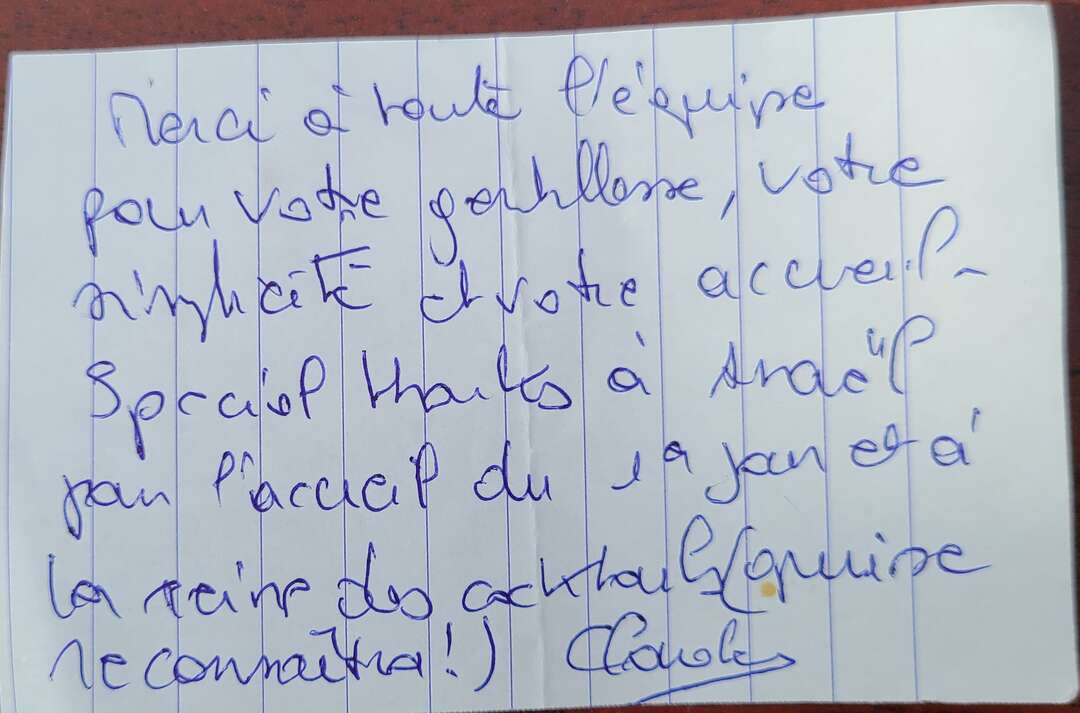 Merci à toute l'équipe
pour votre gentillesse, votre
simplicité et votre accueil.
Special thanks à Anaël
pour l'accueil du 1er jour et à
la reine des cocktails (qui se
reconnaîtra!)